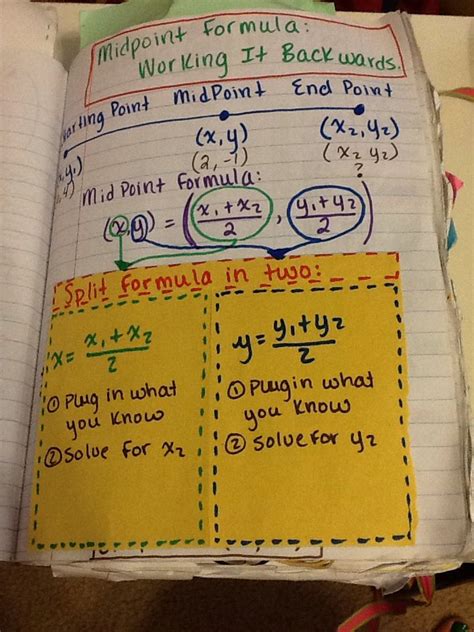 Midpoint Formula:
Working It Backwards.
arting Point MidPoint End Point
(x,y) (x₂,y₂)
(2,-1) (x₂ y₂)
?
Mid Point Formula:
(x,y) = (x₁+x₂/2, y₁+y₂/2)
Split formula in two:
x = x₁+x₂/2
① Plug in what
you know
② Solve for x₂
y = y₁+y₂/2
① Plug in what
you know
② Solve for y₂